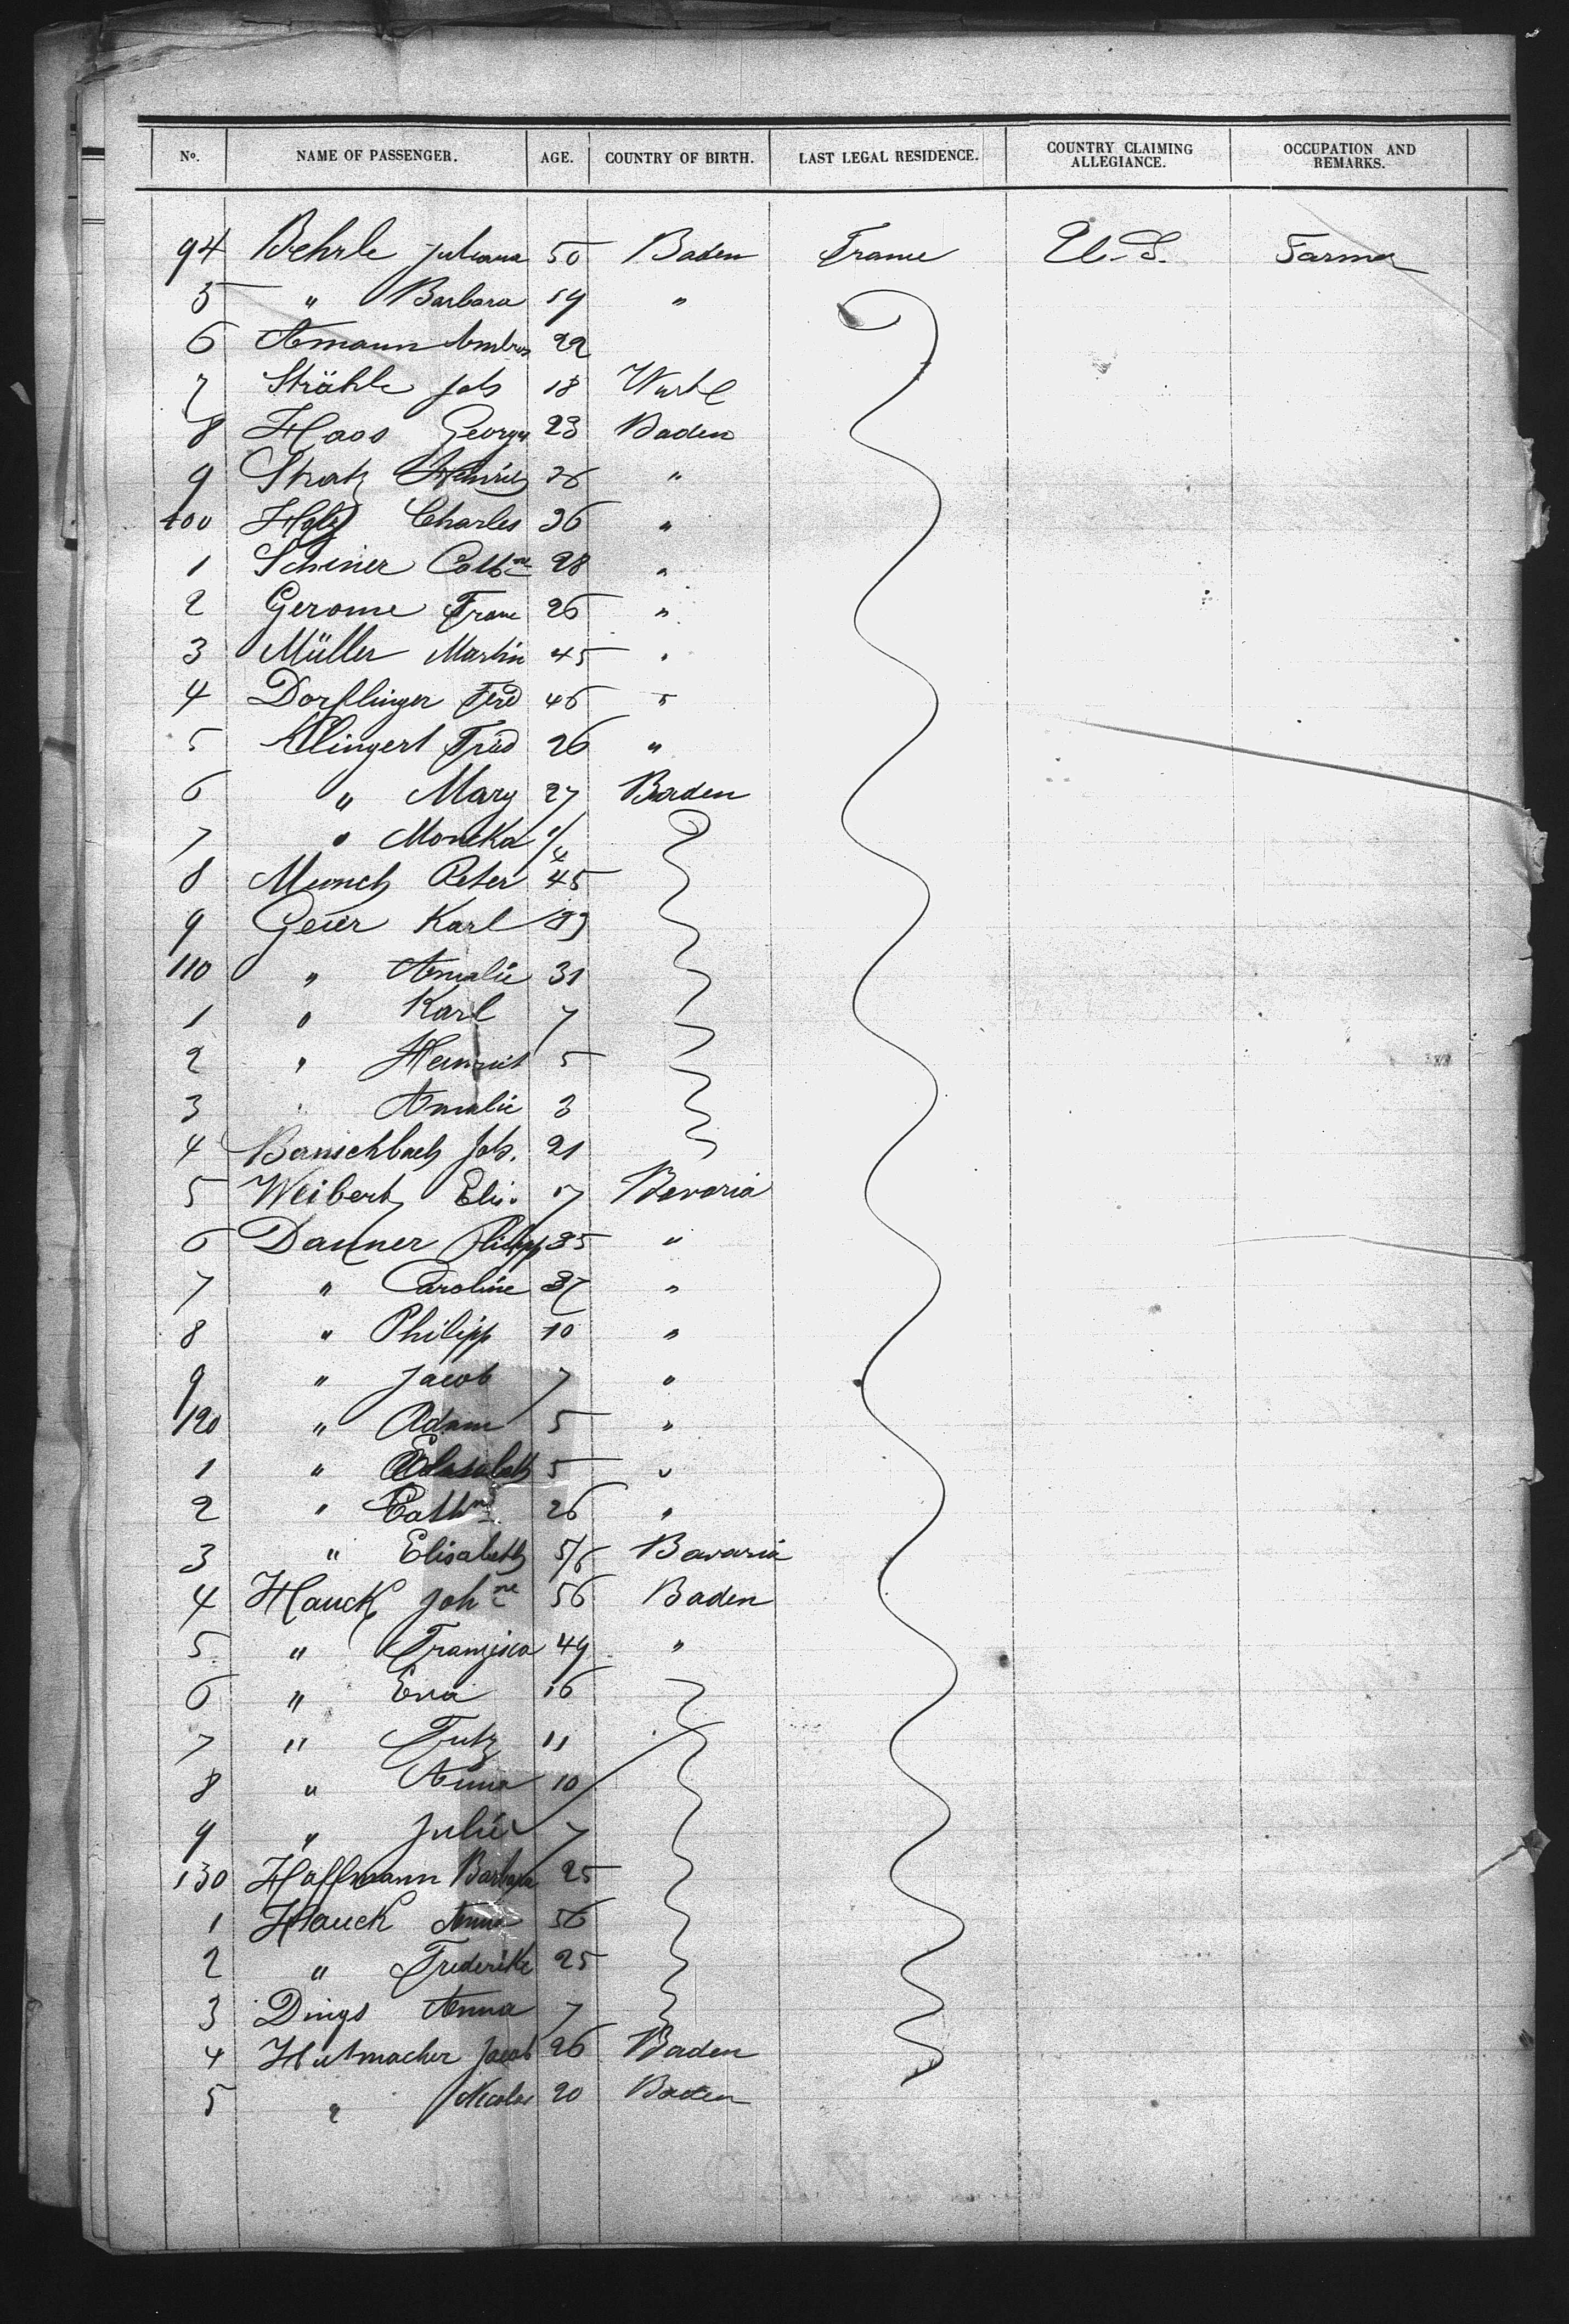 No. NAME OF PASSENGER. AGE. COUNTRY OF BIRTH. LAST LEGAL RESIDENCE. COUNTRY CLAIMING ALLEGIANCE. OCCUPATION AND REMARKS.
94 Behrle Juliana 50 Baden France U.S. Farmer
5 " Barbara 19 "
6 Amann Ambros 22
7 Strähle Joh 18 Wurt
8 Haas George 23 Baden
9 Stratz Henrich 26 "
100 Charles 36 "
1 Schiner Cathne 28 "
2 Gerome Franc 26 "
3 Müller Martin 45 "
4 Dorflinger Ferd 46 "
5 Klingert Fred 26 "
6 " Mary 27 Baden
7 " Moneka /4
8 Munch Peter 45
9 Geier Karl 33
110 " Amalie 31
1 " Karl 7
2 " Heinrich 5
3 " Amalie 3
4 Joh. 21
5 Weibert Elis. 17 Bavaria
6 Danner Philipp 35 "
7 " Caroline 37 "
8 " Philipp 10 "
9 " Jacob 7 "
120 " Adam 5 "
1 " Elisabeth 5 "
2 " Cathne 26 "
3 " Elisabeth 5/6 Bavaria
4 Hauck Johne 56 Baden
5 " Franzisca 49 "
6 " Eva 16
7 " Fritz 11
8 " Anna 10
9 " Julie 7
130 Hoffmann Barbara 25
1 Hauck Anna 56
2 " Frederike 25
3 Dings Anna 7
4 Hutmacher Jacob 26 Baden
5 " Nicolas 20 Baden